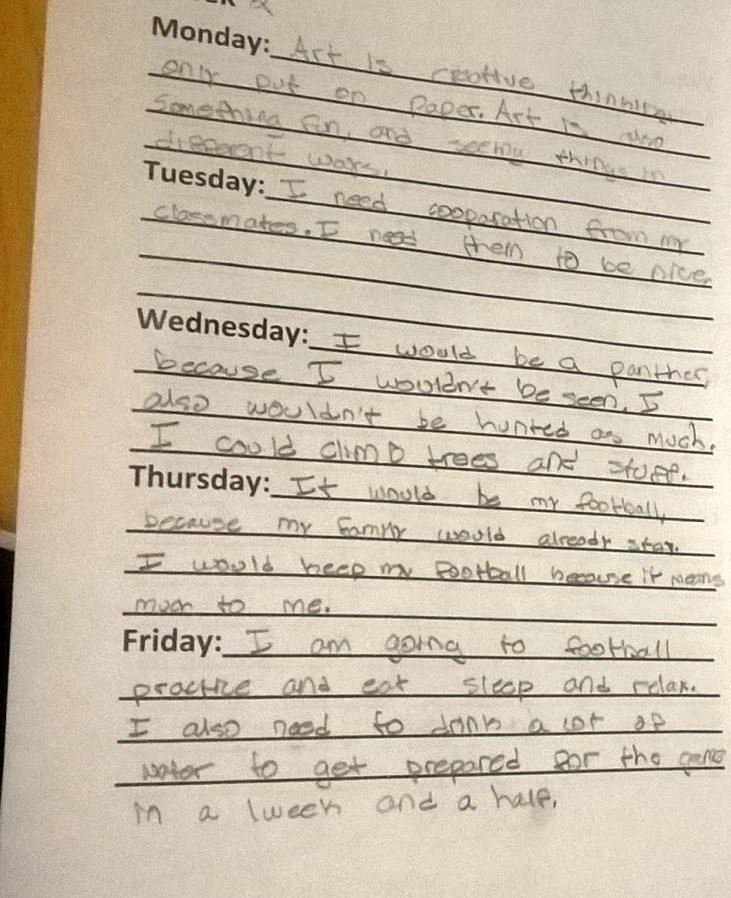 Monday: Art is creative thinking
only put on paper. Art is also
something fun, and seeing things in
different ways.
Tuesday: I need cooparation from my
classmates. I need them to be nice.
Wednesday: I would be a panther,
because I wouldn't be seen. I
also wouldn't be hunted as much.
I could climb trees and stuff.
Thursday: It would be my football,
because my family would already stay.
I would keep my football because it means
much to me.
Friday: I am going to football
practice and eat sleep and relax.
I also need to drink a lot of
water to get prepared for the game
in a 1week and a half.